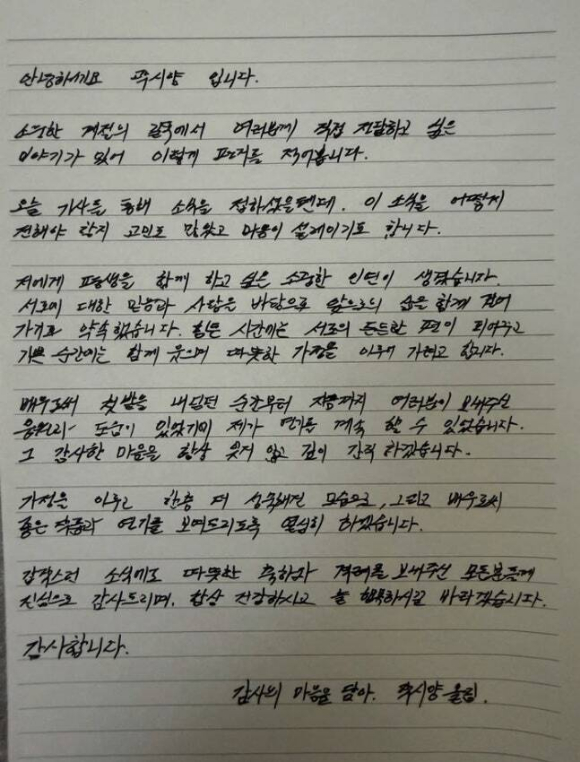 안녕하세요 곽시양 입니다.
소중한 계절의 길목에서 여러분께 직접 전달하고 싶은
이야기가 있어 이렇게 편지를 적어봅니다.
오늘 기사를 통해 소식을 접하셨을텐데. 이 소식을 어떻게
전해야 할지 고민도 많았고 마음이 설레이기도 합니다.
저에게 평생을 함께 하고 싶은 소중한 인연이 생겼습니다.
서로에 대한 믿음과 사랑을 바탕으로 앞으로의 삶을 함께 걸어
가기로 약속했습니다. 힘든 시간에는 서로의 든든한 편이 되어주고
기쁜 순간에는 함께 웃으며 따뜻한 가정을 이루어 가려고 합니다.
배우로써 첫발을 내딛던 순간부터 지금까지 여러분이 보내주신
응원과 도움이 있었기에 제가 연기를 계속 할 수 있었습니다.
그 감사한 마음을 항상 잊지 않고 깊이 간직 하겠습니다.
가정을 이루고 한층 더 성숙해진 모습으로, 그리고 배우로써
좋은 작품과 연기를 보여드리도록 열심히 하겠습니다.
갑작스런 소식에도 따뜻한 축하와 격려를 보내주신 모든분들께
진심으로 감사드리며, 항상 건강하시고 늘 행복하시길 바라겠습니다.
감사합니다.
감사의 마음을 담아. 곽시양 올림.